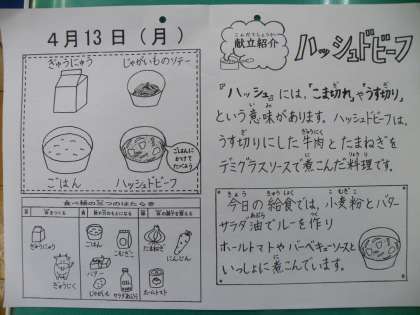 4月13日（月）
ぎゅうにゅう
じゃがいものソテー
ごはん
ハッシュドビーフ
ごはんにかけてたべよう
食べ物の三つのはたらき
ぎゅうにゅう
ぎゅうにく
ごはん
こむぎこ
バター
じゃがいも
サラダあぶら
たまねぎ
にんじん
ホールトマト
こんだてしょうかい
献立紹介
ハッシュドビーフ
『ハッシュ』には、『こま切れ』や『うす切り』
という意味があります。ハッシュドビーフは、
うす切りにした牛肉とたまねぎを
デミグラスソースで煮こんだ料理です。
今日の給食では、小麦粉とバター
サラダ油でルーを作り
ホールトマトやバーベキューソースと
いっしょに煮こんでいます。